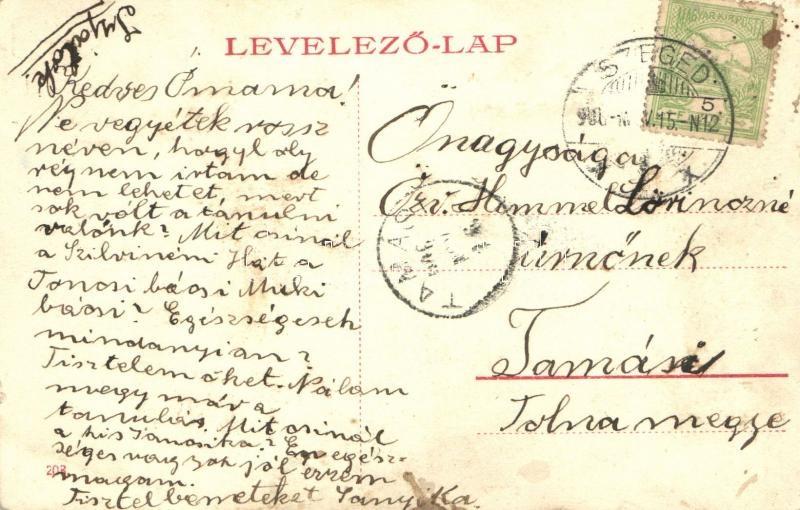 LEVELEZŐ-LAP
MAGYAR KIR. POSTA
SZEGED
5
906
15 N12
TAMÁSI
Kedves Ómama!
Ne vegyétek rossz
néven, hogy oly
rég nem irtam de
nem lehetet, mert
sok vólt a tanulni
valónk? Mit csinál
a Szilvi néni Hát a
Toncsi bácsi Muki
bácsi? Egészségesek
mindanyian?
Tisztelem őket. Nálam
megy már a
tanulás. Mit csinál
a kis Jancsika? En egész-
séges vagyok jól érzem
magam.
Tisztel beneteket Sanyika
Irjatok
Önagysága
Özv. Himmel Lörinczné
úrnőnek
Tamási
Tolna megye
203